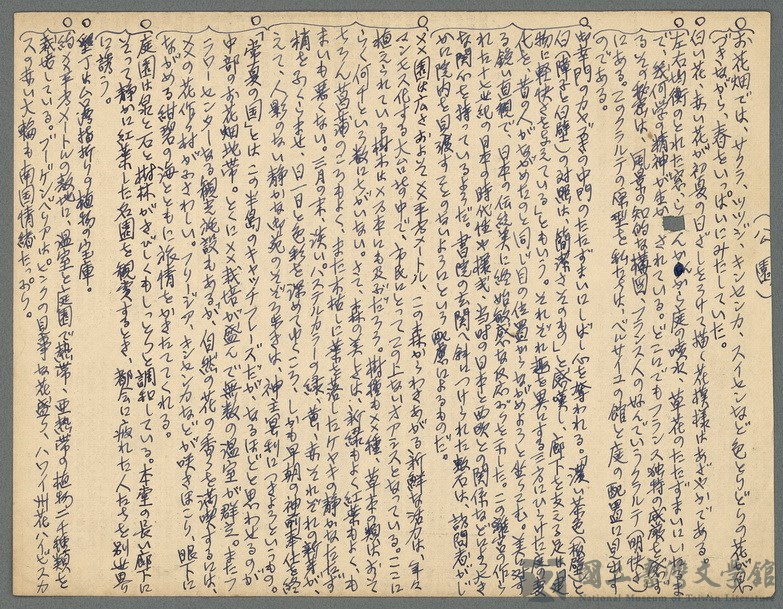 (公園)
お花畑では、サクラ、ツツジ、キンセンカ、スイセンなど色とりどりの花が
つぎながら、春をいっぱいにみたしていた。
白い花、赤い花が初夏の日ざしをうけて描く花模様はあざやかである
左右均衡のとれた窓、らんかんから庭の噴水、草花のたたずまいにいたるま
で、幾何学的精神が生かされている。どこにでもフランス独特の感覚をみせ
るその姿は、風景の知的な構図、フランス人の好んでいうクラルテ(明快)
にある。このクラルテの原型を私たちは、ベルサイユの館と庭の配置に見出す
のである。
中華門のカヤぶきの中門のたたずまいにしばし心を奪われる。濃い茶色(板壁)と
白(障子と白壁)の対照は、簡潔さそのもの」と感嘆し、廊下を支える足は建
物に軽快さをあたえている」ともいう。それぞれ趣を異にする三方にひらけた庭の変
化を、昔の人がながめたのと同じ目の位置からながめようと坐っても、美に対す
る鋭い直観で、日本の伝統美に終始敏感な反応がみられた。この離宮が作ら
れた十七世紀の日本の時代性や様式、当時の日本と西欧との関係などにも大き
な関心を持っているようだ。書院の玄関へ斜につけられた敷石は、訪問者がじ
かに院内を目渡すことのないようにという配慮によるものだ。
××園は広さおよそ××平方メートル、この森からわきあがる新鮮な活力は、年々
マンモス化する大公害の中で、市民にとってこの上ないオアシスとなっている。ここに
植えられている樹木は××本にも及ぶだろう。樹種も××種、草木の類はおそ
らく何千という数にちがいない。さて、森の美しさは、新緑もよく紅葉もよく、も
ちろん菖蒲のころもよく、また冬枯に葉を落したケヤキの静かなたたず
まいも悪くない。三月の末、淡いパステルカラーの緑、黄、赤それぞれの新芽が、
梢をふくらませ、日一日と色彩を深めてゆくころ、しかも早朝の神前奉仕を終
えて、人影のない静かな御苑のそぞろ歩きは、神主冥利につきようというもの。
「常夏の国」とはこの半島のキャッチフレーズだが、なるほどと思わせるのが
中部のお花畑地帯。とくに××栽培が盛んで無数の温室が群立。またフ
ラワーセンターなる観光施設もあるが、自然の花の香りを満喫するには、
××の花作り村がふさわしい。フリージア、キンセンカなどが咲きほこり、眼下に
ながめる紺碧の海とともに旅情をかきたててくれる。
庭園は泉と石と樹林がさびしくもしっとりと調和している。本堂の長い廊下に
そって静かに紅葉した名園を観賞するとき、都会に疲れた人たちを別世界
に誘う。
熱帯、亜熱帯の植物二千種類を
約××平方メートルの敷地に、温室と庭園で
栽培している。ブーゲンビリアはピンクの見事な花盛り、ハワイ州花ハイビスカ
スの赤い大輪も南国情緒たっぷり。
國立臺灣文學館
National Museum of Taiwan Literature